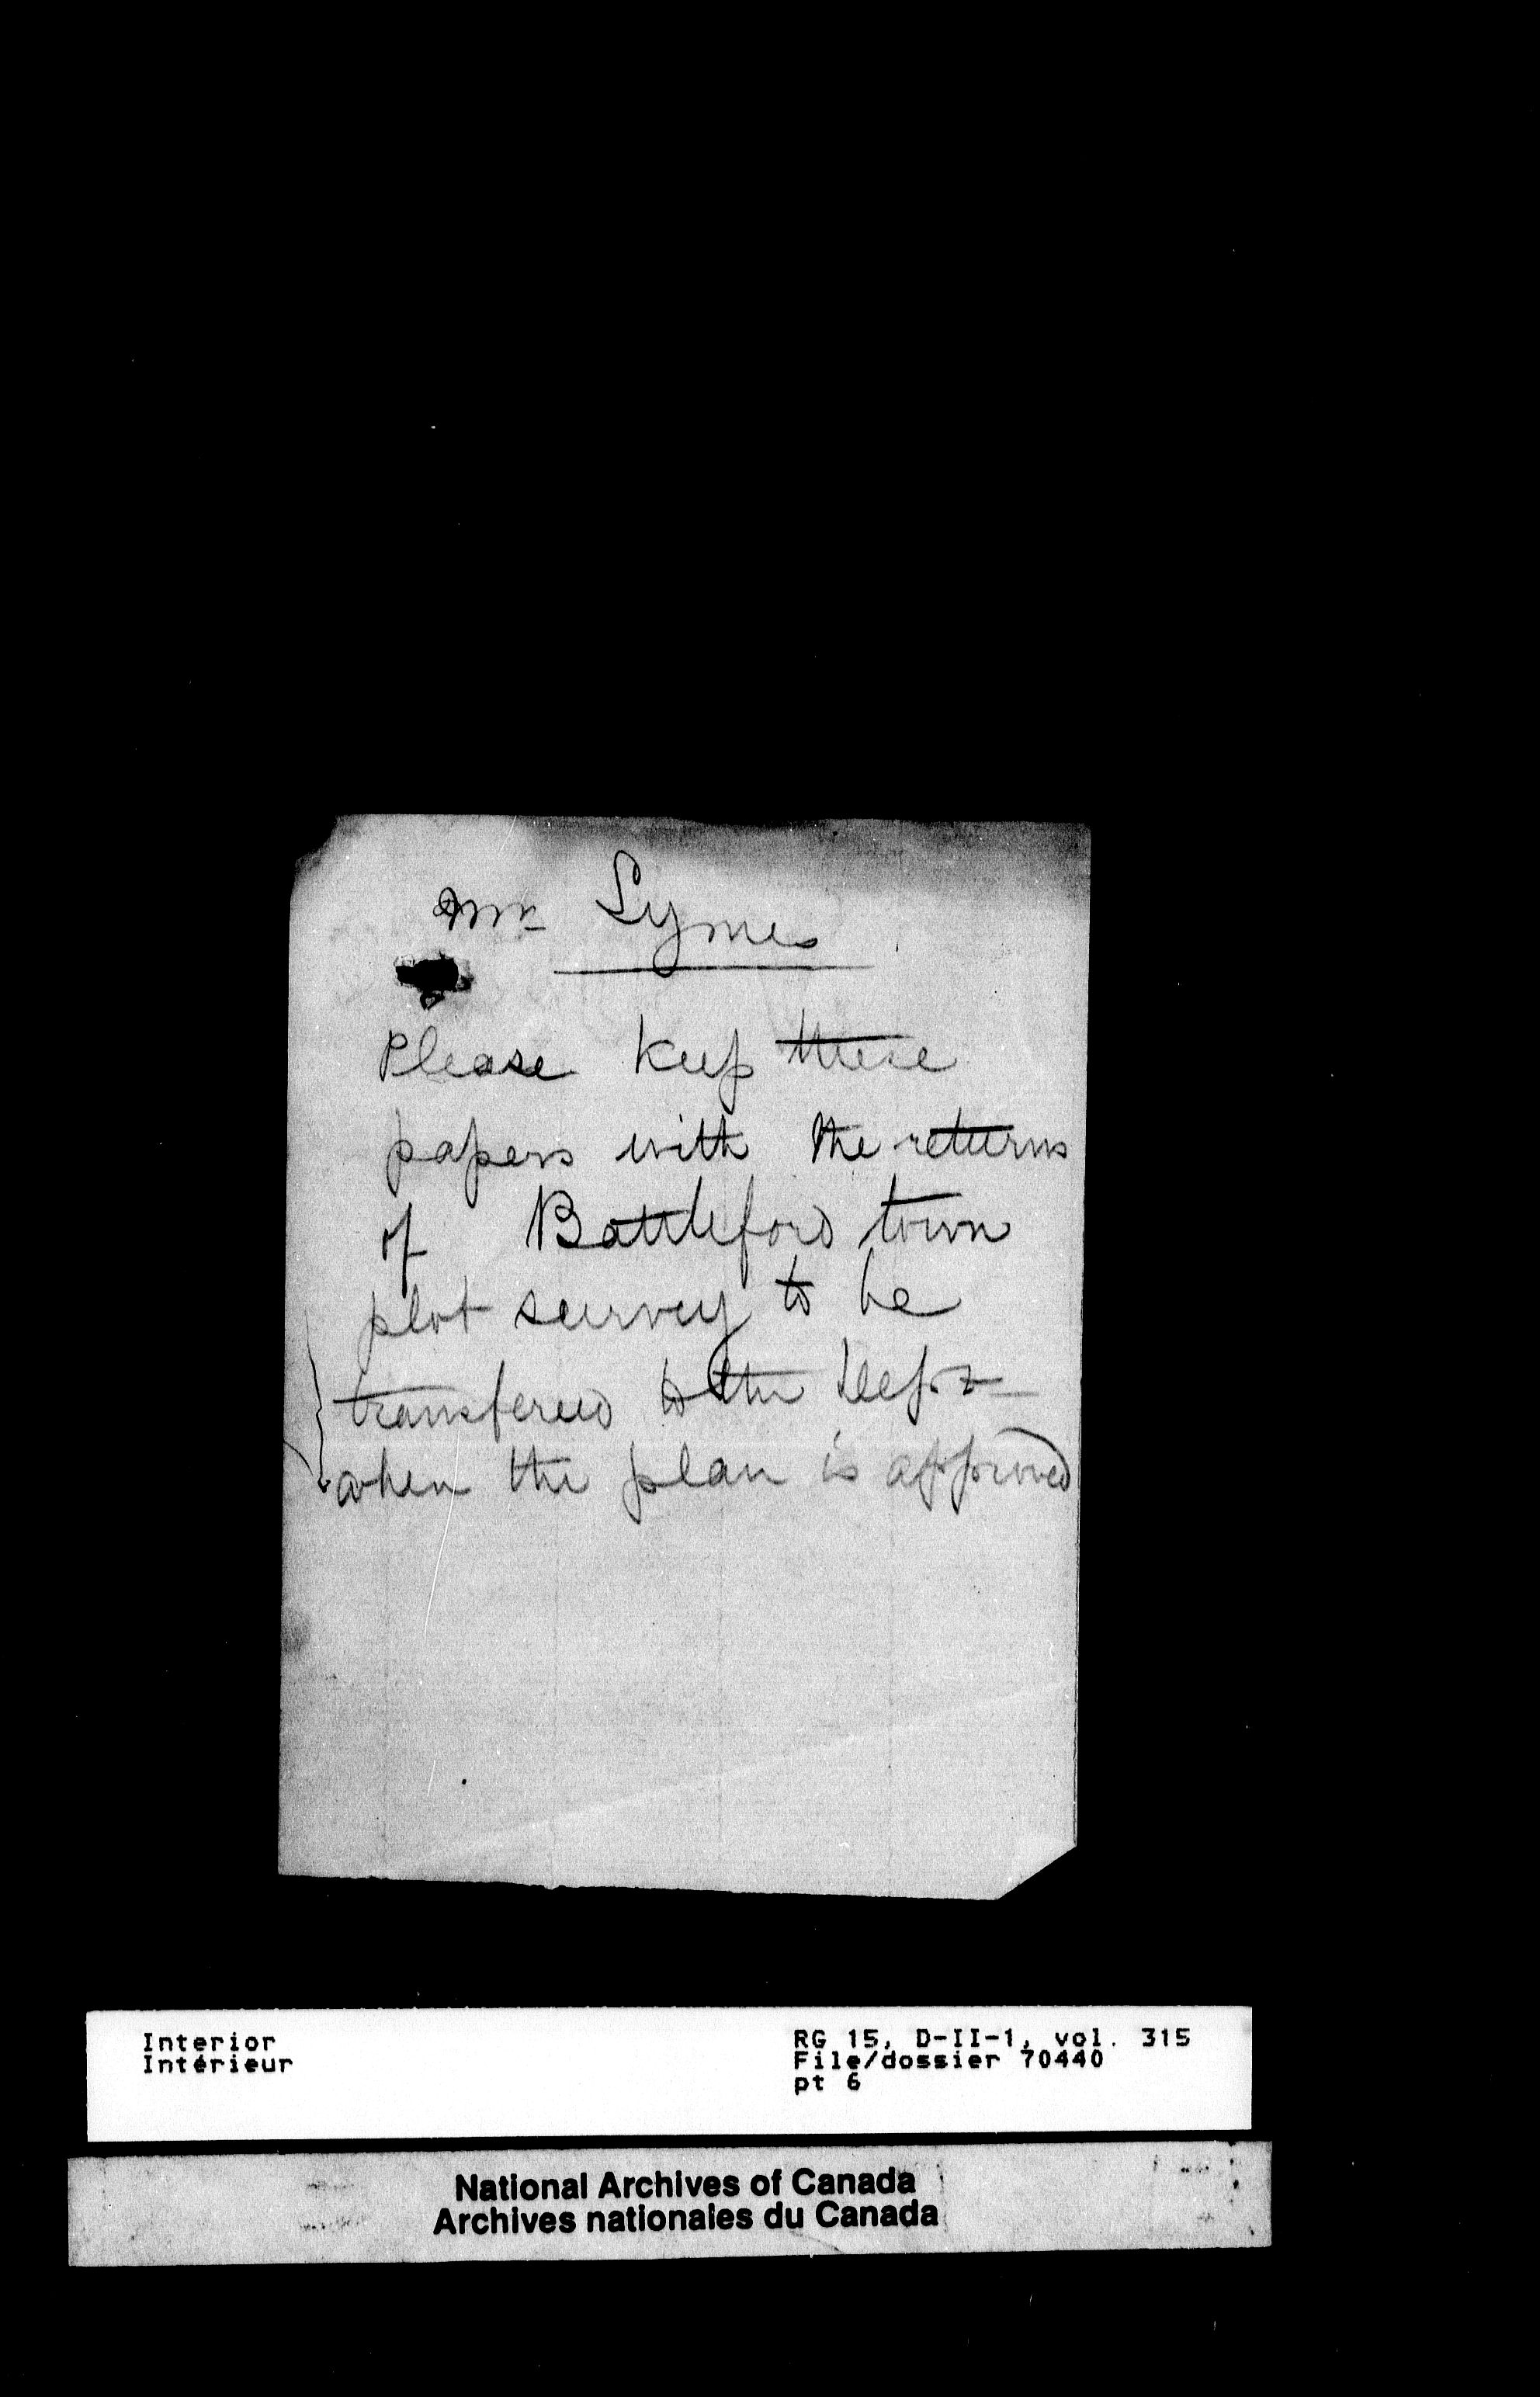 Mr Symes
Please keep these
papers with the returns
of Battleford town
plot survey to be
transfered to the Dept
when the plan is approved
Interior
Intérieur
RG 15, D-II-1, vol. 315
File/dossier 70440
pt 6
National Archives of Canada
Archives nationales du Canada